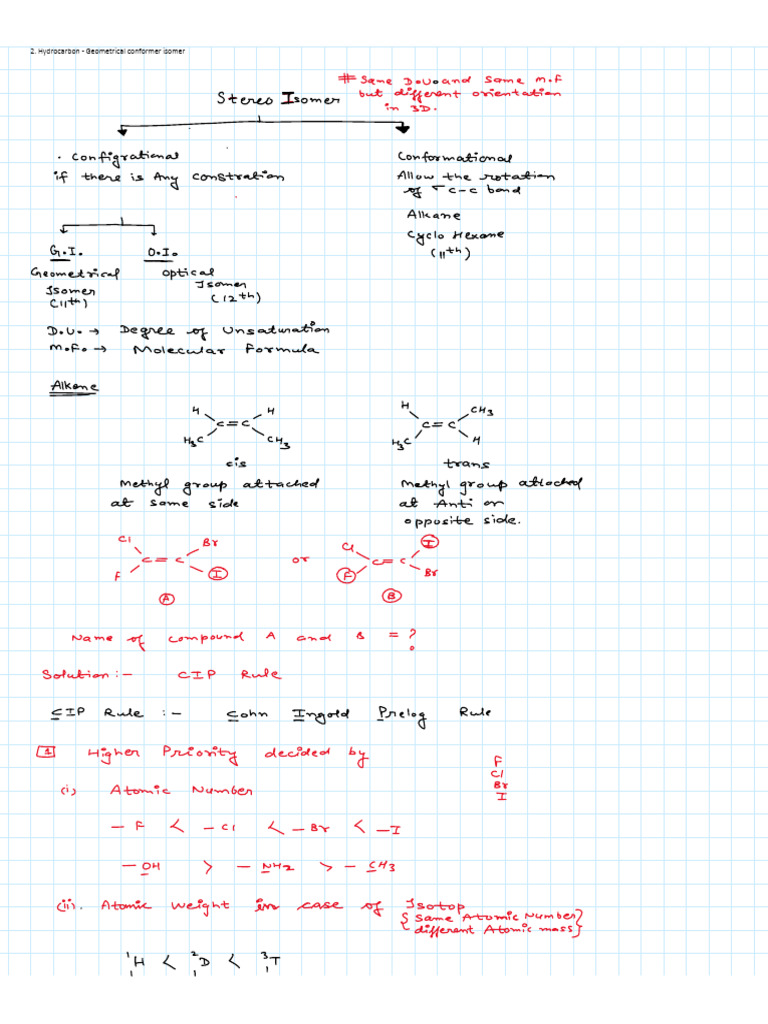 2. Hydrocarbon - Geometrical conformer isomer
# Same D.U. and Same M.F
but different orientation
in 3D.
Stereo Isomer
. Configrational
if there is Any constration
Conformational
Allow the rotation
of σ C-C bond
Alkane
Cyclo Hexane
(11th)
G.I.
O.I.
Geometrical
Isomer
(11th)
optical
Isomer
(12th)
D.U. → Degree of Unsaturation
M.F. → Molecular Formula
Alkene
H H
C=C
H3C CH3
cis
Methyl group attached
at same side
H CH3
C=C
H3C H
trans
Methyl group attached
at Anti or
opposite side.
Cl Br
C=C
F I
A
or
Cl I
C=C
F Br
B
Name of Compound A and B = ?
Solution :- CIP Rule
CIP Rule :- Cohn Ingold Prelog Rule
1 Higher Priority decided by
F
Cl
Br
I
(i) Atomic Number
- F < - Cl < - Br < - I
- OH > - NH2 > - CH3
(ii). Atomic weight in case of Isotop
{Same Atomic Number}
{different Atomic mass}
1H1 < 2D1 < 3T1